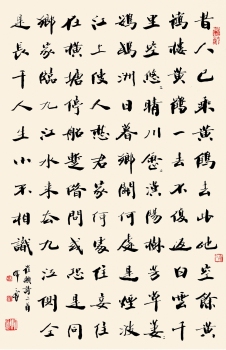 昔人已乘黃鶴去此地空餘黃
鶴樓黃鶴一去不復返白雲千
里空悠悠晴川歷歷漢陽樹芳草萋萋
鸚鵡洲日暮鄉關何處是煙波
江上使人愁君家何處住妾住
在橫塘停船暫借問或恐是同
鄉家臨九江水來去九江側同
是長干人生小不相識
崔顥詩二首